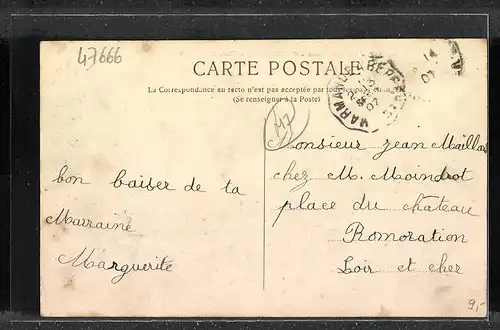 47666
CARTE POSTALE
La Correspondance au recto n'est pas acceptée par tous les pays étrangers
(Se renseigner à la Poste)
147
Monsieur Jean Maillar
chez M. Moindrot
place du chateau
Romoration
Loir et cher
bon baiser de ta
Marraine
Marguerite
9,-